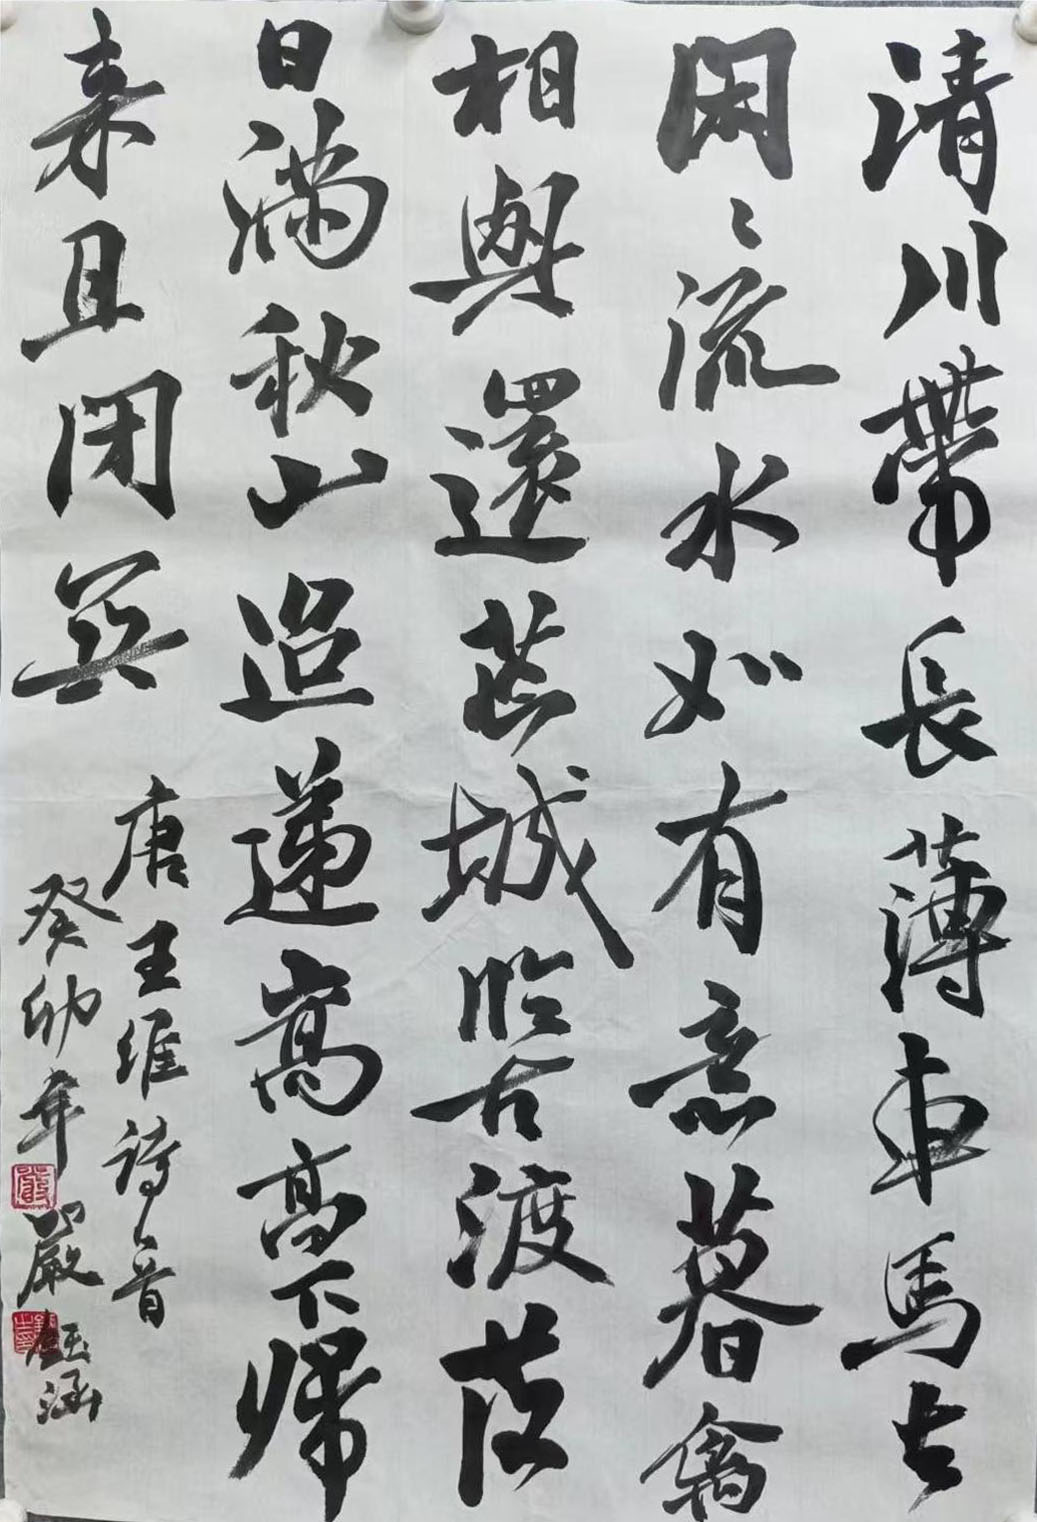 清川帶長薄車馬去
閑々流水如有意暮禽
相與還荒城臨古渡落
日滿秋山迢递嵩高下歸
来且閉關
唐王維詩一首
癸卯年嚴鈺涵